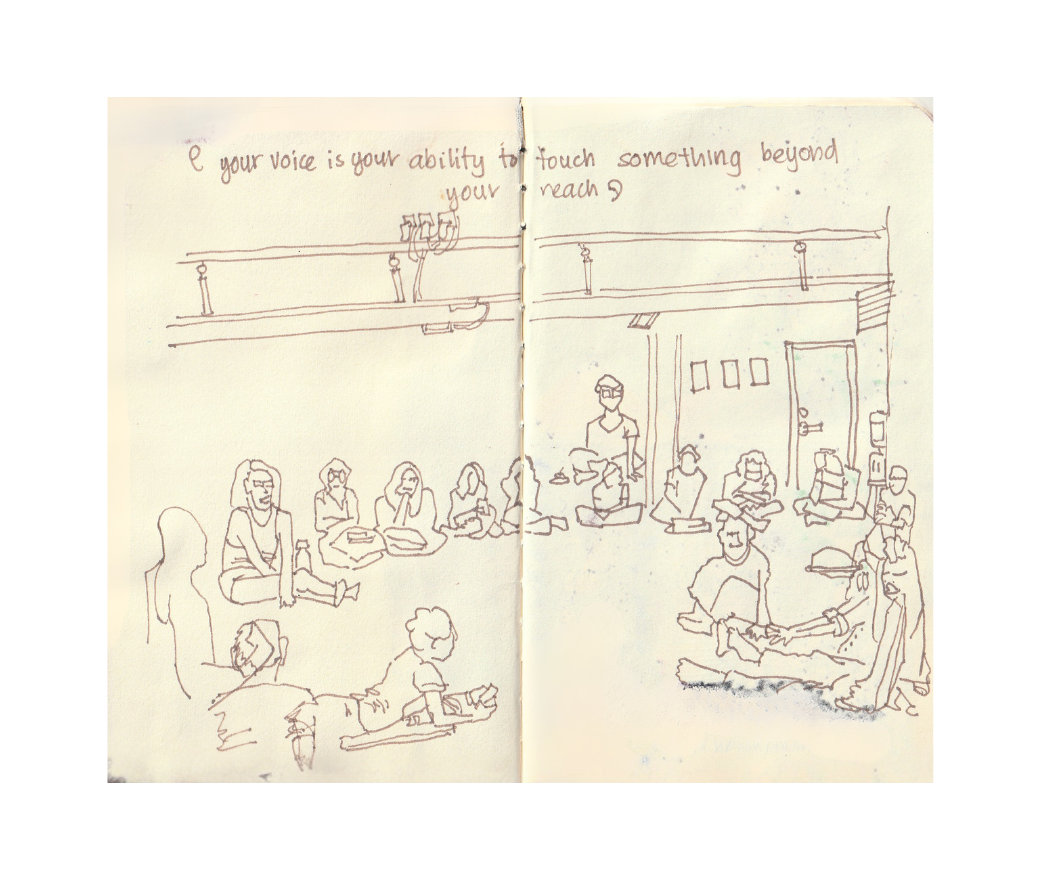 your voice is your ability to touch something beyond
your reach